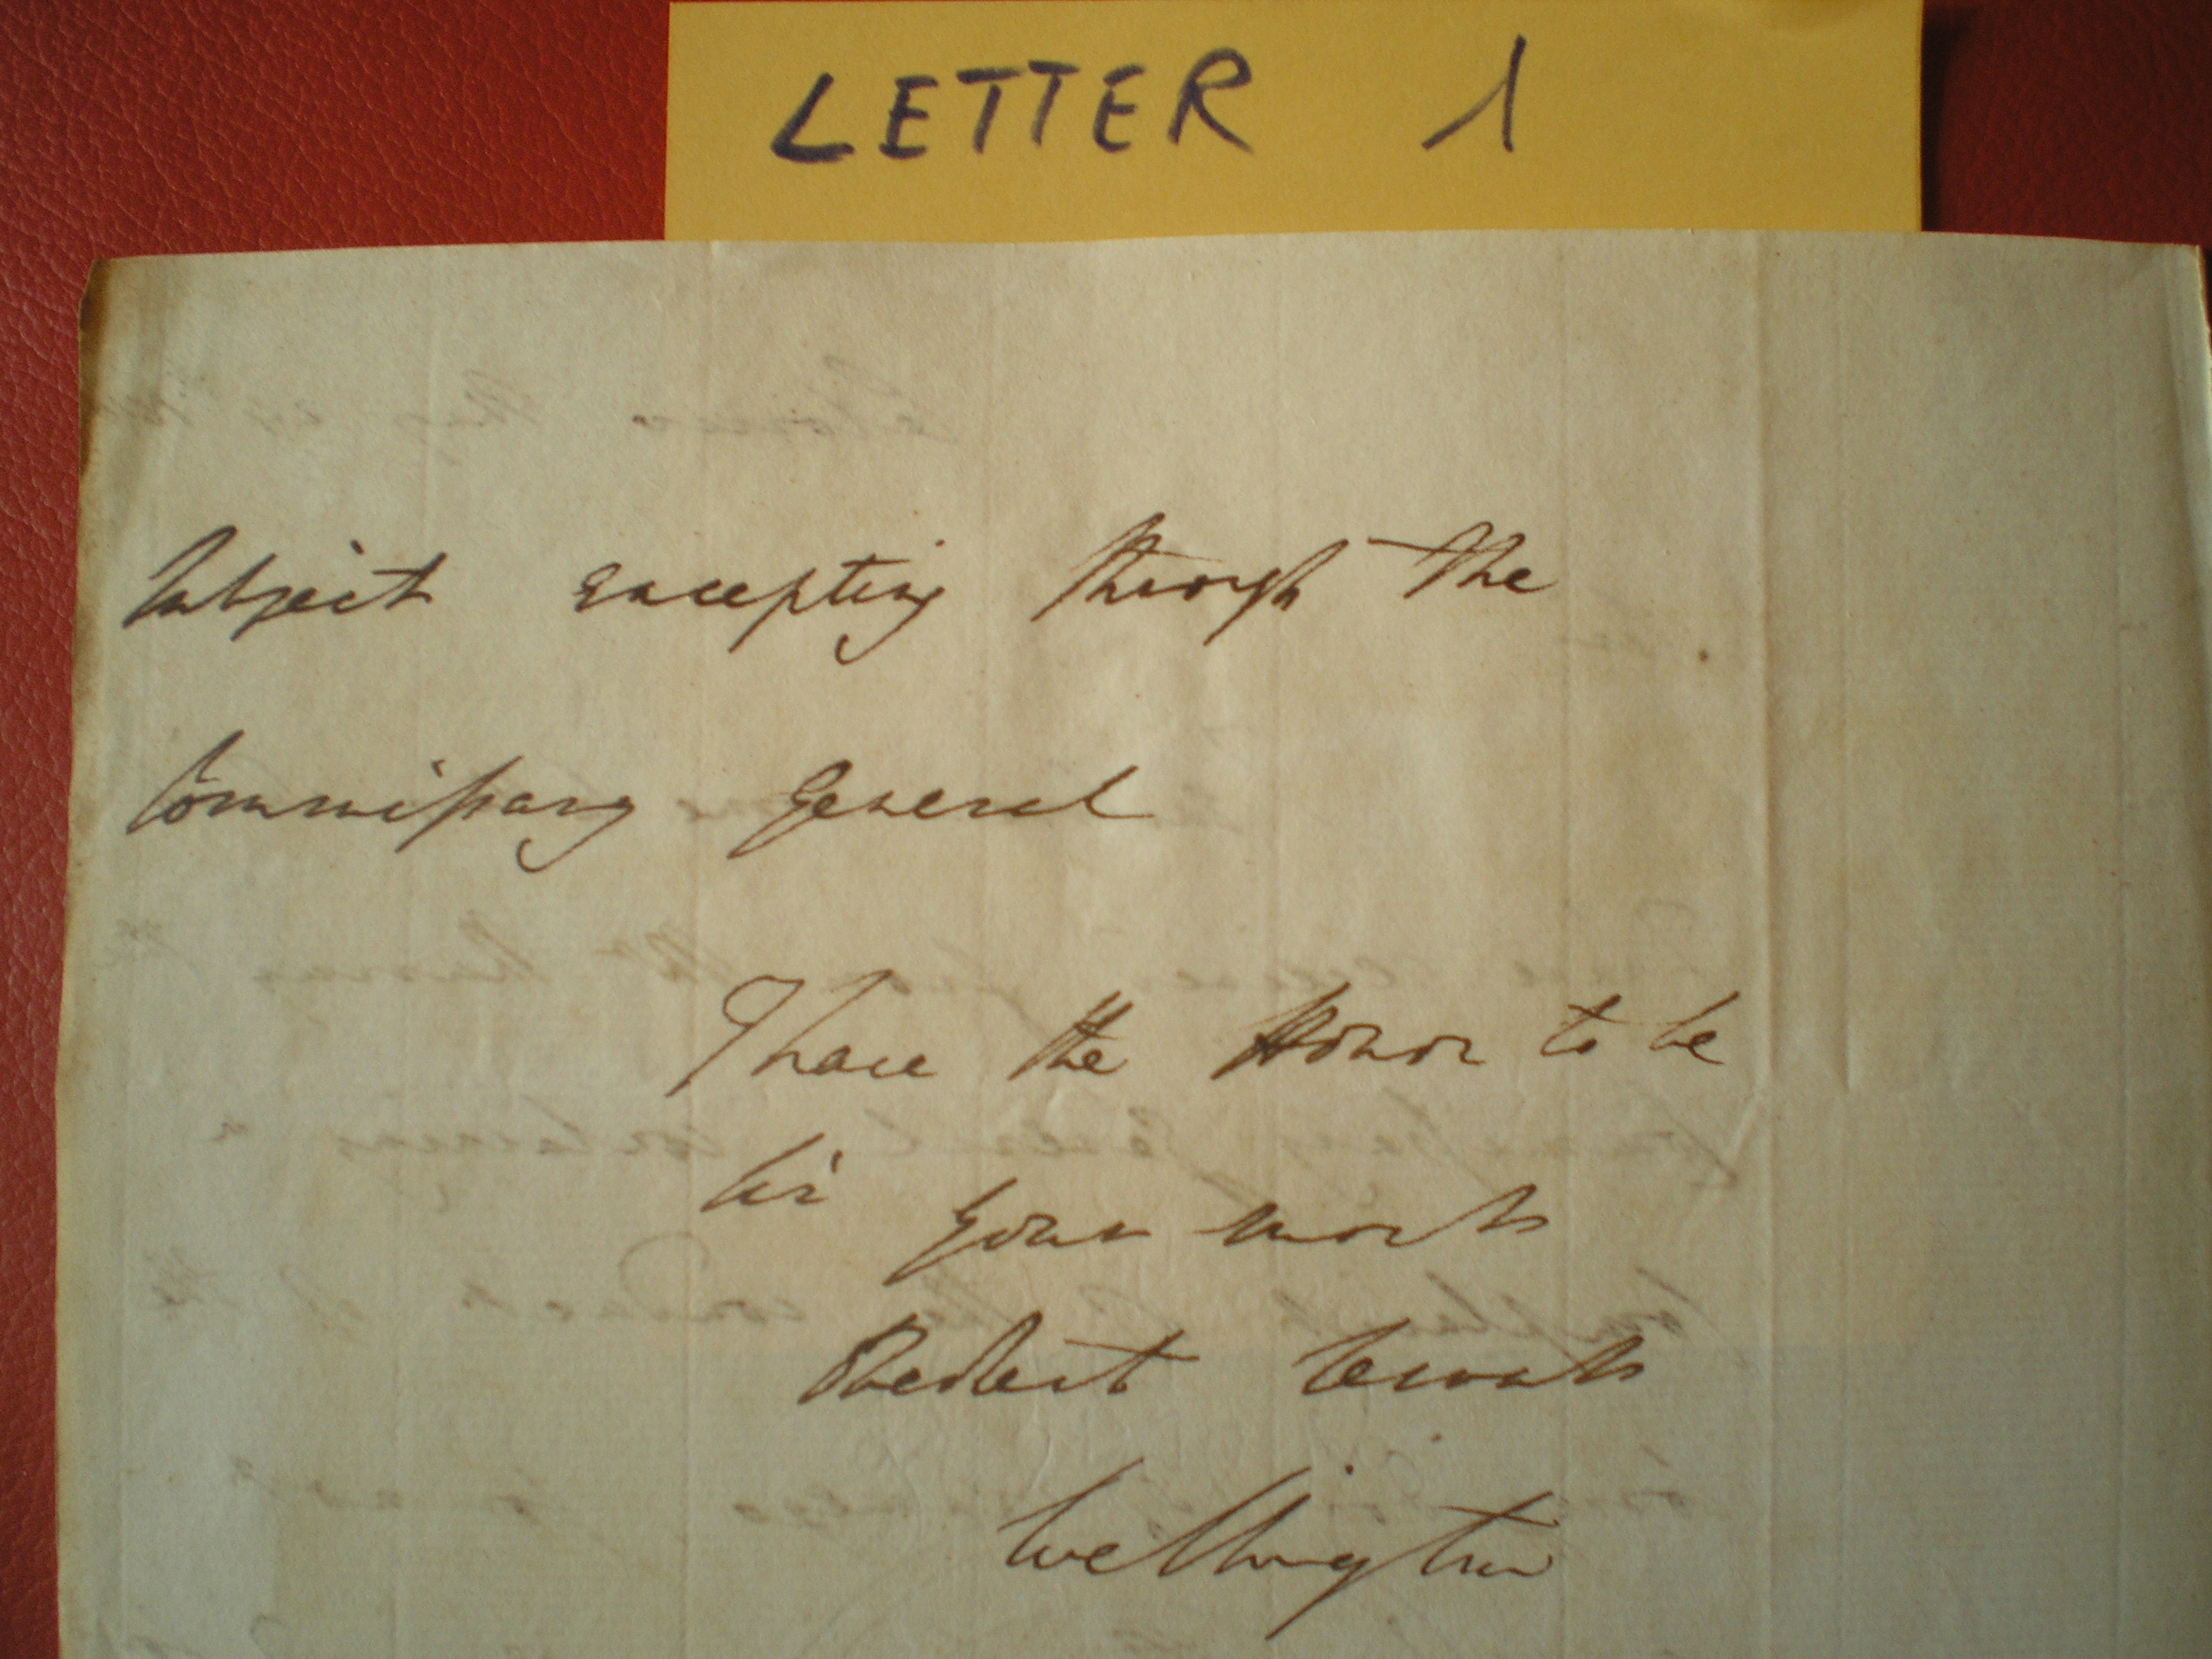 LETTER 1
Subject excepting through the
Commissary General
I have the Honor to be
Sir
Your most
Obedient Servant
Wellington